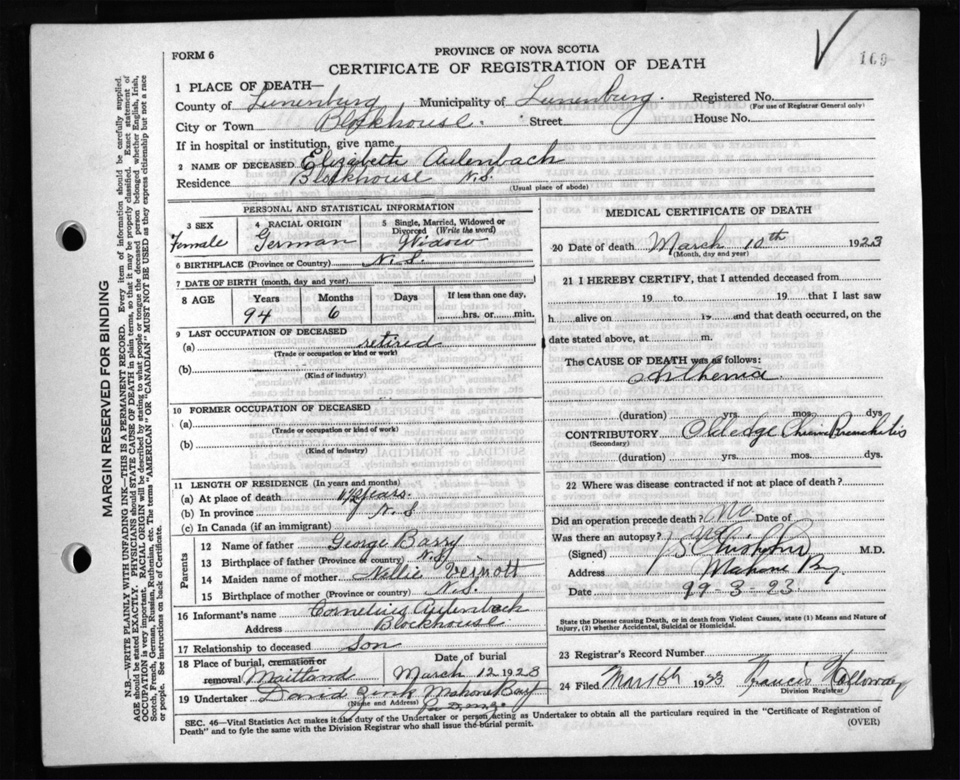 169
FORM 6
PROVINCE OF NOVA SCOTIA
CERTIFICATE OF REGISTRATION OF DEATH
1 PLACE OF DEATH—
County of Lunenburg Municipality of Lunenburg. Registered No.
(For use of Registrar General only)
City or Town Blockhouse. Street House No.
If in hospital or institution, give name
2 NAME OF DECEASED Elizabeth Aulenbach
Residence Blockhouse N.S.
(Usual place of abode)
PERSONAL AND STATISTICAL INFORMATION
3 SEX Female
4 RACIAL ORIGIN German
5 Single, Married, Widowed or Divorced (Write the word) Widow
6 BIRTHPLACE (Province or Country) N.S.
7 DATE OF BIRTH (month, day and year)
8 AGE Years Months Days If less than one day,
94 6 hrs. or min.
9 LAST OCCUPATION OF DECEASED
(a) retired
(Trade or occupation or kind or work)
(b)
(Kind of industry)
10 FORMER OCCUPATION OF DECEASED
(a)
(Trade or occupation or kind of work)
(b)
(Kind of industry)
11 LENGTH OF RESIDENCE (In years and months)
(a) At place of death years.
(b) In province N.S
(c) In Canada (if an immigrant)
Parents
12 Name of father George Barry
13 Birthplace of father (Province or country) N.S
14 Maiden name of mother Nellie Veinott
15 Birthplace of mother (Province or Country) N.S.
16 Informant's name Cornelius Aulenbach
Address Blockhouse
17 Relationship to deceased Son
18 Place of burial, cremation or removal Maitland
Date of burial March 12 1923
19 Undertaker David Zink Mahone Bay
(Name and Address)
SEC. 46—Vital Statistics Act makes it the duty of the Undertaker or person acting as Undertaker to obtain all the particulars required in the "Certificate of Registration of
Death" and to fyle the same with the Division Registrar who shall issue the burial permit.
(OVER)
MEDICAL CERTIFICATE OF DEATH
20 Date of death March 10th 1923
(Month, day and year)
21 I HEREBY CERTIFY, that I attended deceased from
19 to 19 that I last saw
h alive on 19 and that death occurred, on the
date stated above, at m.
The CAUSE OF DEATH was as follows:
Asthenia
(duration) yrs. mos. dys
CONTRIBUTORY Old age Chronic Bronchitis
(Secondary)
(duration) yrs. mos. dys.
22 Where was disease contracted if not at place of death?
Did an operation precede death? No. Date of
Was there an autopsy?
(Signed) M.D.
Address Mahone B
Date 99-3-23
State the Disease causing Death, or in death from Violent Causes, state (1) Means and Nature of
Injury, (2) whether Accidental, Suicidal or Homicidal.
23 Registrar's Record Number
24 Filed Mar 16th 1923 Francis Holloway
Division Registrar
MARGIN RESERVED FOR BINDING
N.B.—WRITE PLAINLY WITH UNFADING INK—THIS IS A PERMANENT RECORD. Every item of information should be carefully supplied.
AGE should be stated EXACTLY. PHYSICIANS should STATE CAUSE OF DEATH in plain terms, so that it may be properly classified. Exact statement of
OCCUPATION is very important. RACIAL ORIGIN will be described by stating to what people or tongue the deceased person belonged whether English, Irish,
Scotch, French, German, Russian, Ruthenian, etc. The terms "AMERICAN" OR "CANADIAN" MUST NOT BE USED as they express citizenship but not a race
or people. See instructions on back of Certificate.